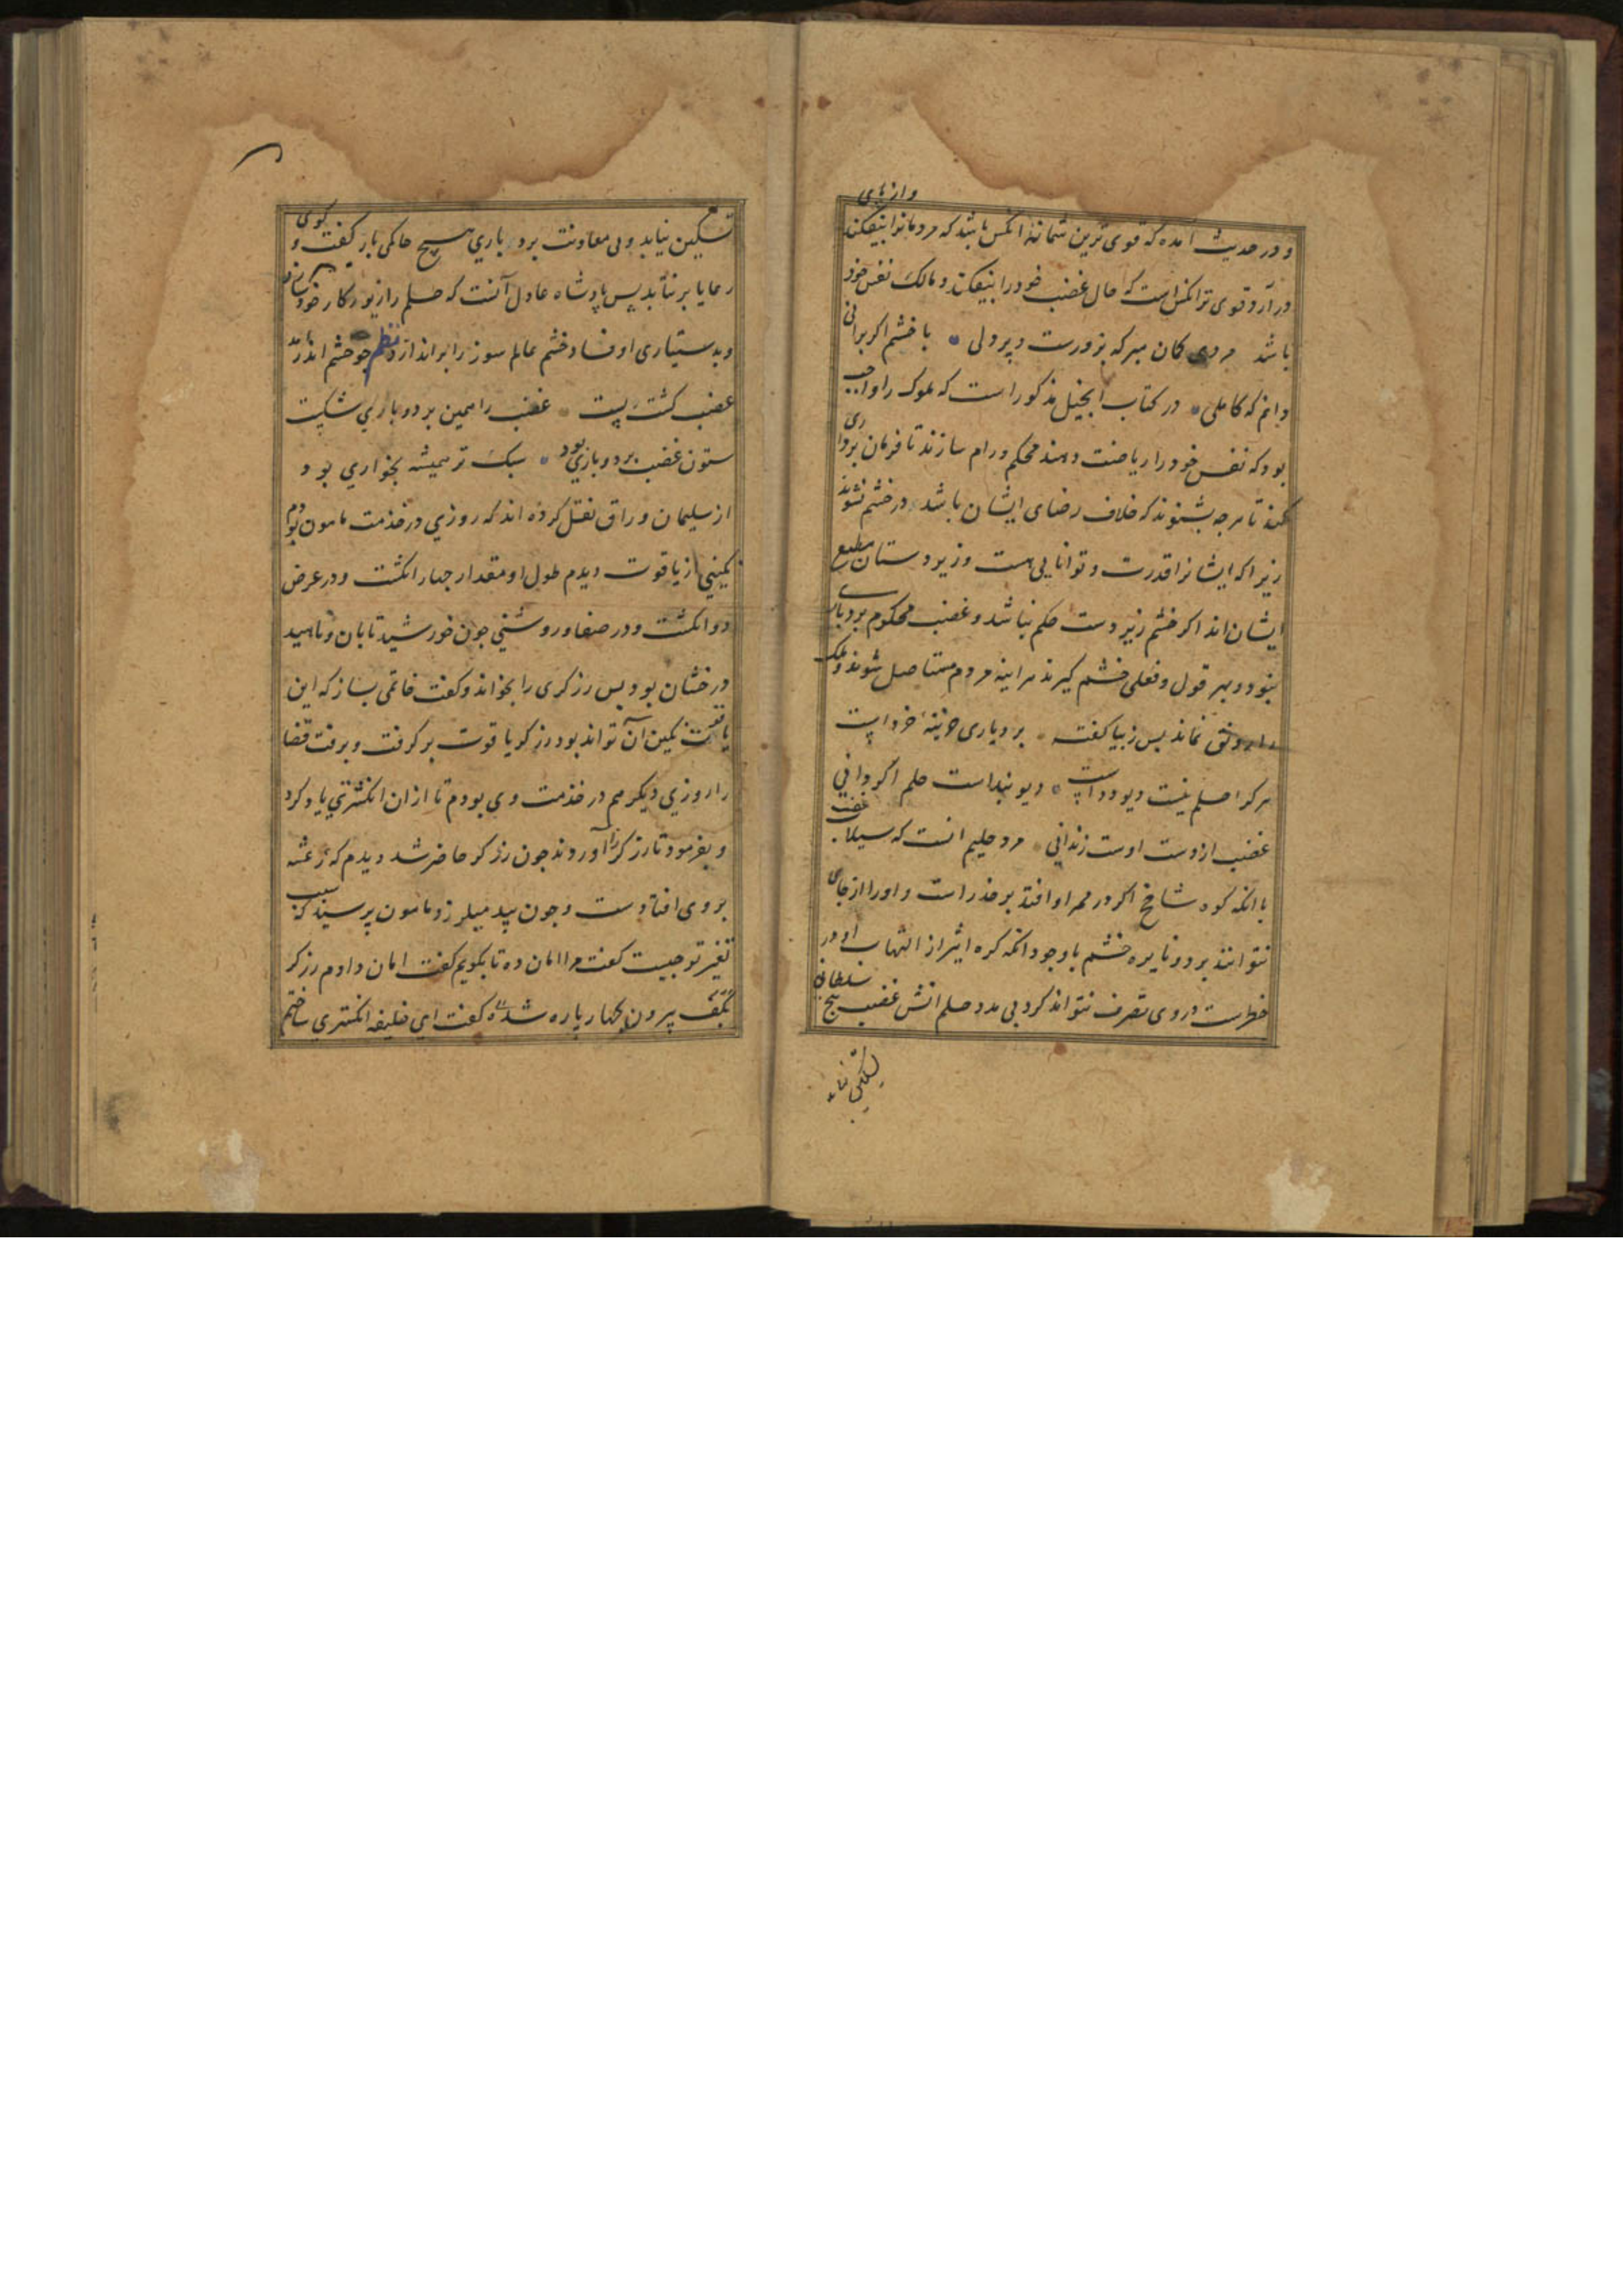 و در حدیث امده که قوی ترین شما نه انکس باشد که مردمانرا بیفکند و از پای
در آرد قوی تر انکس است که حال غضب خود را بیفکند و مالک نفس خود
باشد مردی کمان مبر که بزورست و پردلی با خشم اکر برائی
دانم که کاملی در کتاب انجیل مذکور است که ملوک را واجب
بود که نفس خود را ریاضت دهند محکم و رام سازند تا فرمان برداری
کند تا هرچه بشنوند که خلاف رضای ایشان باشد در خشم نشوند
زیرا که ایشانرا قدرت و توانایی هست و زیردستان مطیع
ایشان اند اکر خشم زیر دست حلم نباشد و غضب محکوم بردباری
نبود و بهر قول و فعلی خشم کیرند هراینه مردم مستاصل شوند و ملک
را رونق نماند پس زیبا کفته بردباری خزینهٔ خرد است
هر کرا حلم نیست دیو و دد است دیو بنداست حلم اکر دانی
غضب از وست اوست زندانی مرد حلیم انست که سیلاب غضب
با انکه کوه شامخ اکر در ممر او افتد بر حذر است و اورا از جای
نتوانند برد و نایره خشم با وجود انکه کره اثیر از التهاب او در
خطرست در وی تصرف نتواند کرد بی مدد حلم اتش غضب هیچ سلطانی
تسکین نیابد
تسکین نیابد و بی معاونت بردباری هیچ حاکمی بار کفت و کوی
رعایا بر نتابد پس پادشاه عادل آنست که حلم را زیور کار خود سازد
و بدستیاری او فساد خشم عالم سوز را براندازد نظم جو خشم اندر امد
غضب کشت پست غضب را همین بردباری شکست
ستون غضب بردباری بود سبک سر همیشه بخواری بود
از سلیمان وراق نقل کرده اند که روزی در خدمت مامون بودم
نکینی از یاقوت دیدم طول او مقدار جهار انکشت و در عرض
دو انکشت و در صفا و روشنی جون خورشید تابان و ناهید
درخشان بود پس زرکری را بخواند و کفت خاتمی بساز که این
یاقوت نکین آن تواند بود زرکر یاقوت بر کرفت و برفت قضا
را روزی دیکر هم در خدمت وی بودم تا از ان انکشتری یاد کرد
و بفرمود تا زرکر را آوردند جون زرکر حاضر شد دیدم که رعشه
بر وی افتادست و جون بید میلرزد مامون پرسید که سبب
تغیر تو جیست کفت مرا امان ده تا بکویم کفت امان دادم زرکر
نکین بیرون بجهار پاره شده کفت ای خلیفه انکشتری ساختم